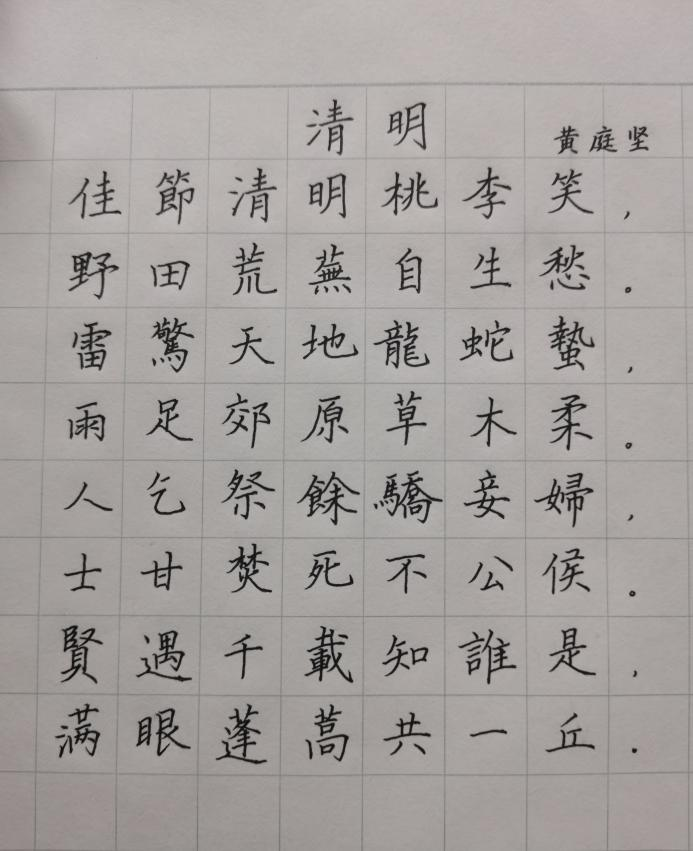 清明
黄庭坚
佳節清明桃李笑，
野田荒蕪自生愁。
雷驚天地龍蛇蟄，
雨足郊原草木柔。
人乞祭餘驕妾婦，
士甘焚死不公侯。
賢遇千載知誰是，
满眼蓬蒿共一丘.